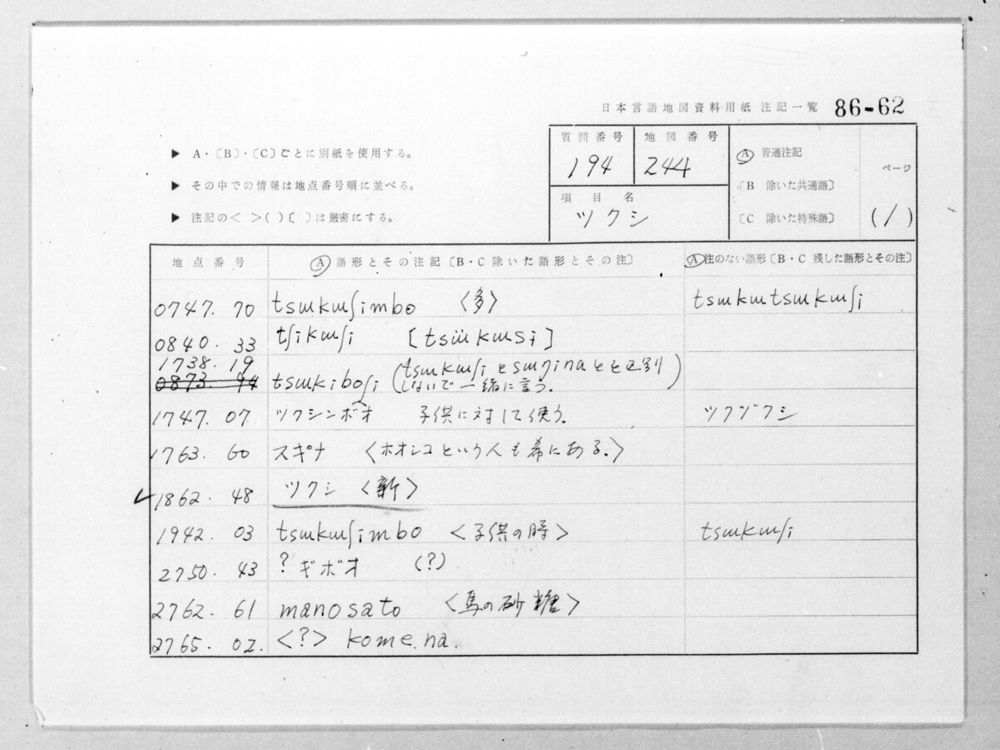 日本言語地図資料用紙 注記一覧 86-62
▶ A・〔B〕・〔C〕ごとに別紙を使用する。
▶ その中での情報は地点番号順に並べる。
▶ 注記の< >( )〔 〕は厳密にする。
質問番号 194
地図番号 244
項目名 ツクシ
Ⓐ 普通注記
〔B 除いた共通語〕
〔C 除いた特殊語〕
ページ (1)
地点番号 Ⓐ 語形とその注記〔B・C除いた語形とその注〕 Ⓐ 注のない語形〔B・C 残した語形とその注〕
0747. 70 tsɯkɯʃimbo <多> tsɯkɯtsɯkɯʃi
0840. 33 tʃikɯʃi [tsɯ̈kɯsï]
1738. 19
0873 94 tsɯkiboʃi (tsɯkɯʃiとsɯŋinaとを区別
しないで一緒に言う.)
1747. 07 ツクシンボオ 子供に対して使う. ツクヅクシ
1763. 60 スギナ <ホオシコという人も希にある.>
✓1862. 48 ツクシ <新>
1942. 03 tsɯkɯʃimbo <子供の時> tsɯkɯʃi
2750. 43 ? ギボオ (?)
2762. 61 manosato <馬の砂糖>
2765. 02. <?> kome.na.